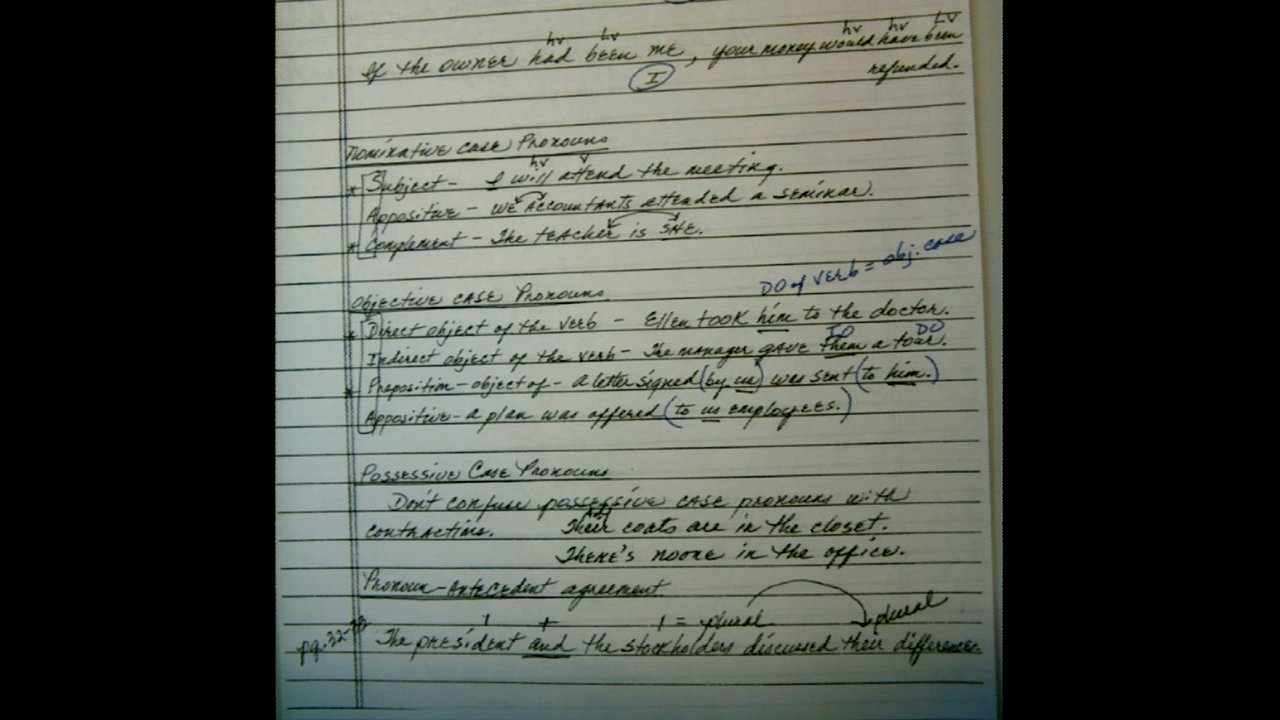 hv hv hv hv hv
If the owner had been me, your money would have been
I refunded.
Nominative Case Pronouns
hv v
* Subject - I will attend the meeting.
Appositive - we Accountants attended a seminar.
* Complement - The teacher is SHE.
DO of verb = obj. case
Objective Case Pronouns
* Direct object of the verb - Ellen took him to the doctor.
IO DO
Indirect object of the verb - The manager gave them a tour.
* Preposition - object of - A letter signed (by us) was sent (to him.)
Appositive - a plan was offered (to us employees.)
Possessive Case Pronouns
Don't confuse possessive case pronouns with
contractions. Their coats are in the closet.
There's noone in the office.
Pronoun - Antecedent agreement
1 + 1 = plural plural
pg. 32- The president and the stockholders discussed their differences.